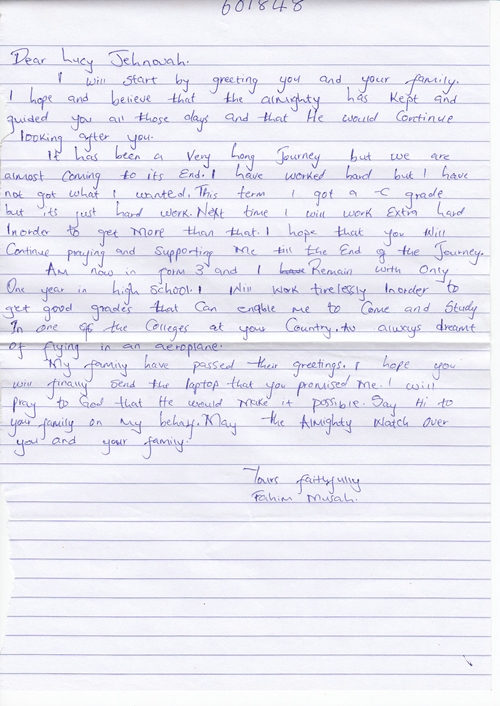 601848
Dear Lucy Jehnovah.
I will start by greeting you and your family.
I hope and believe that the almighty has kept and
guided you all those days and that He would Continue
looking after you.
It has been a very long Journey but we are
almost Coming to its End. I have worked hard but I have
not got what I wanted. This term I got a -C grade
but its just hard work. Next time I will work Extra hard
Inorder to get More than that. I hope that you Will
Continue praying and Supporting Me till the End of the Journey.
Am now in form 3 and I Remain with Only
One year in high School. I Will Work tirelessly Inorder to
get good grades that Can enable me to Come and Study
In one of the Colleges at your Country. Av always dreamt
of flying in an aeroplane.
My family have passed their greetings. I hope you
will finally Send the laptop that you promised Me. I will
pray to God that He would Make it possible. Say Hi to
your family on My behalf. May the Almighty Watch Over
you and your family.
Yours faithfully
Fahim Musah.